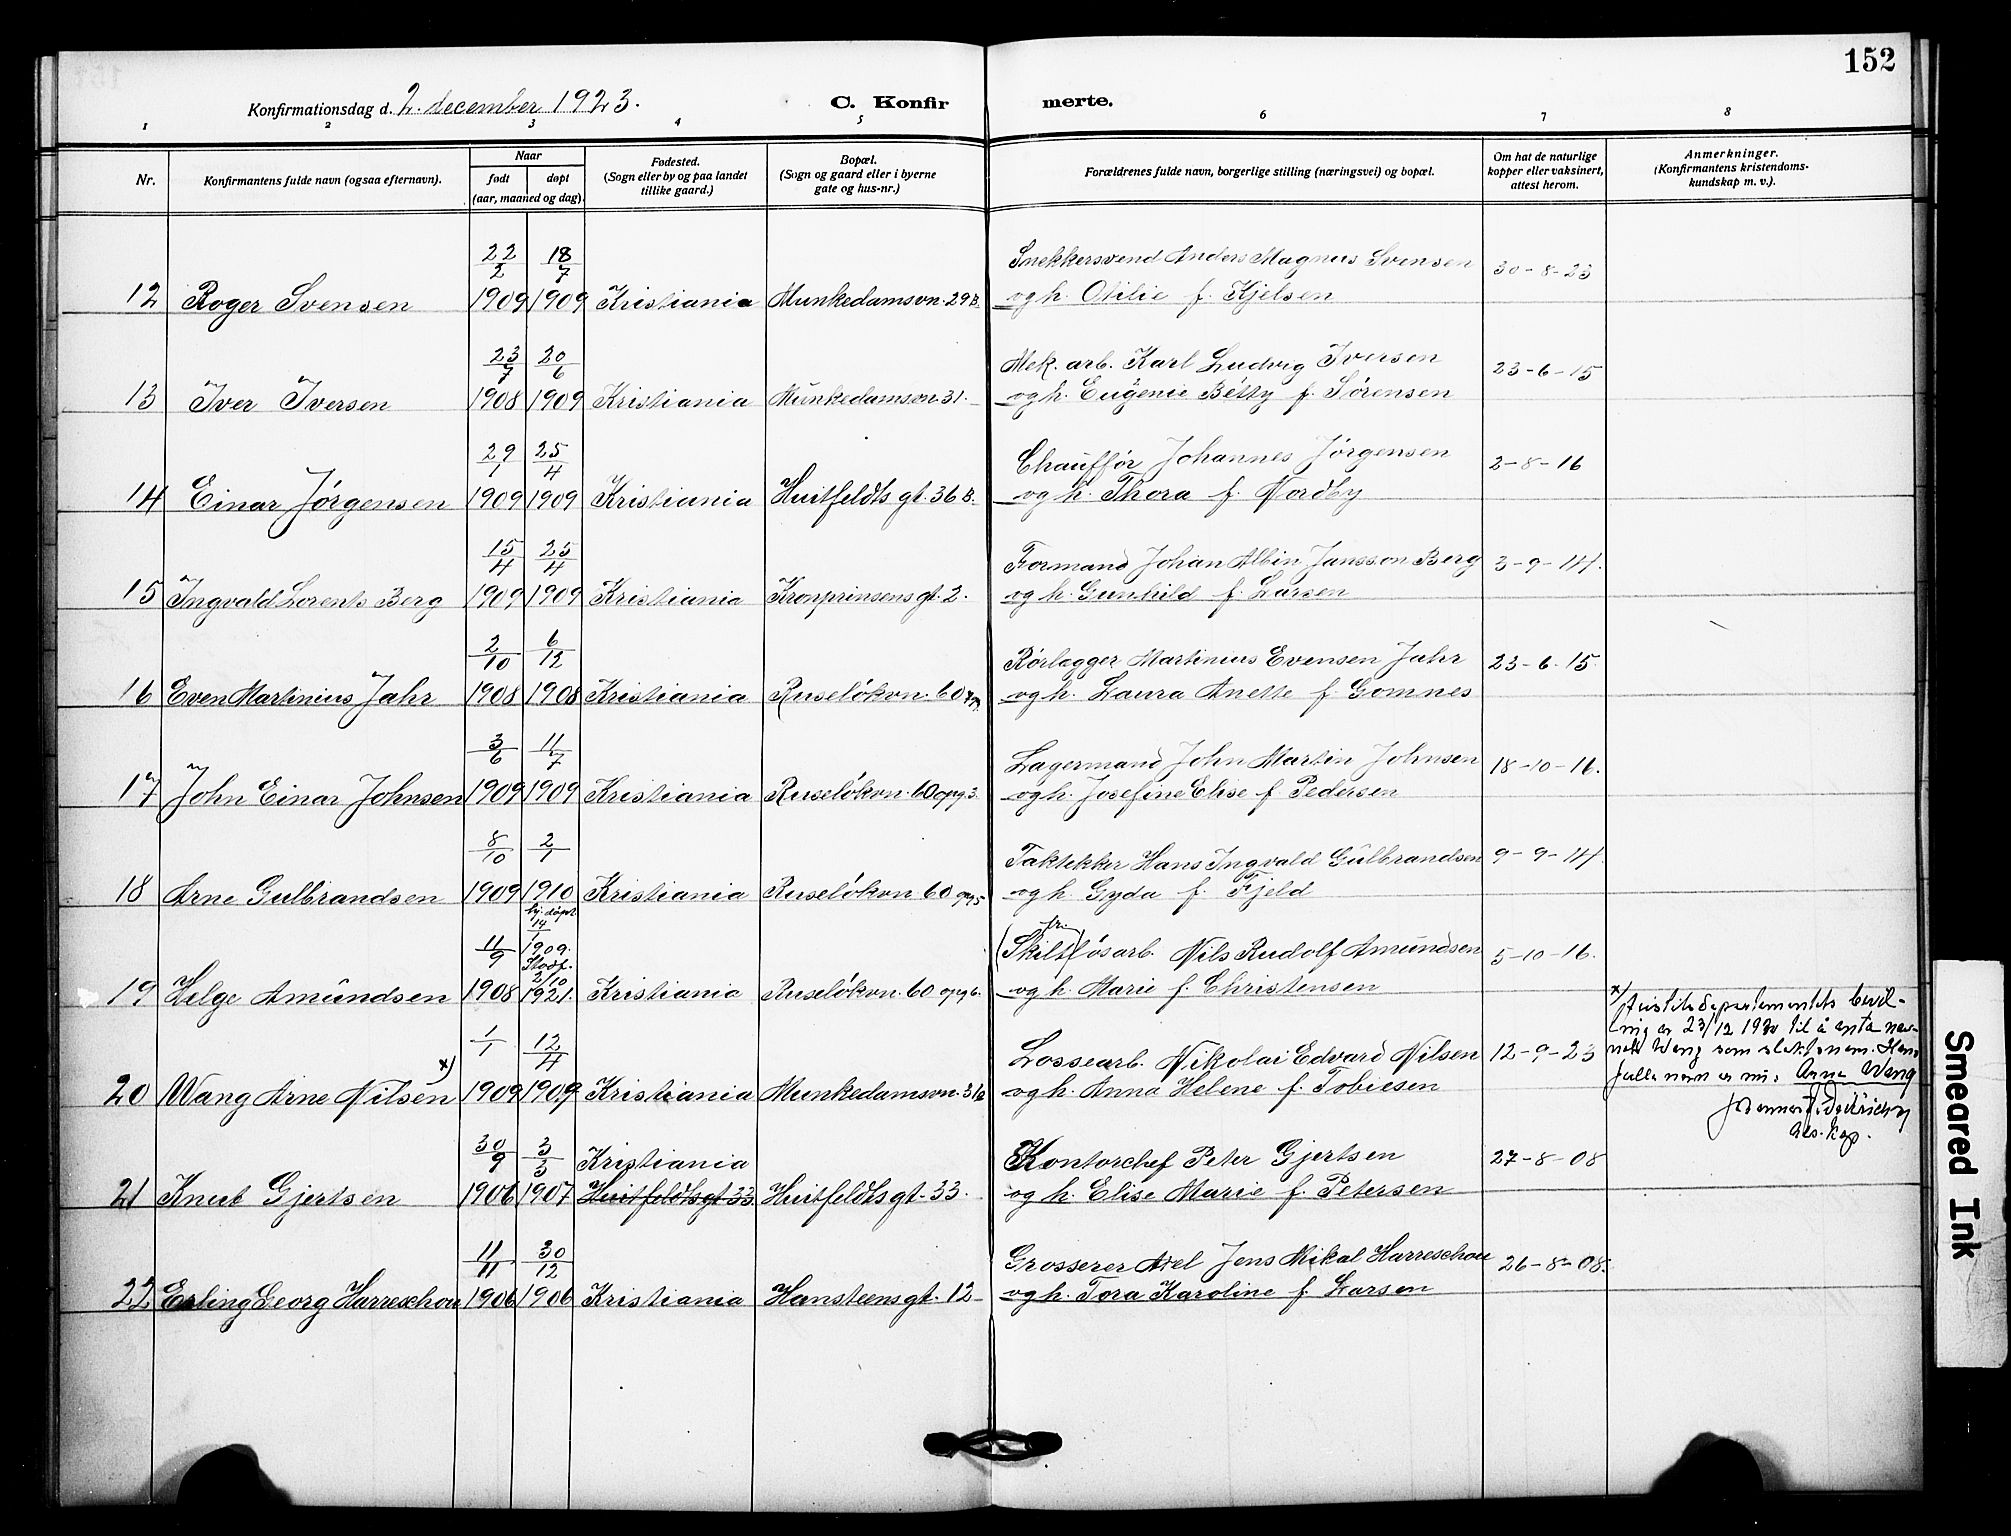 152
Konfirmationsdag d. 2. december 1923.
C. Konfirmerte.
1 2 3 4 5 6 7 8
Nr.
Konfirmantens fulde navn (ogsaa efternavn).
Naar
født
døpt
(aar, maaned og dag)
Fødested.
(Sogn eller by og paa landet
tillike gaard.)
Bopæl.
(Sogn og gaard eller i byerne
gate og hus-nr.)
Forældrenes fulde navn, borgerlige stilling (næringsvei) og bopæl.
Om hat de naturlige
kopper eller vaksinert,
attest herom.
Anmerkninger.
(Konfirmantens kristendoms-
kundskap m. v.).
22/2 18/7 Snekkersvend Anders Magnus Svensen 30-8-23
12 Roger Svensen 1909 1909 Kristiania Munkedamsvn. 29B. og h. Otilie f. Kjelsen
23/7 20/6 Mek. arb. Karl Ludvig Iversen 23-6-15
13 Iver Iversen 1908 1909 Kristiania Munkedamsvn 31. og h. Eugenie Betty f. Sørensen
29/1 25/4 Chauffør Johannes Jørgensen 2-8-16
14 Einar Jørgensen 1909 1909 Kristiania Huitfeldts gt. 36B. og h. Thora f. Nordby
15/4 25/4 Formand Johan Albin Jansson Berg 3-9-14.
15 Ingvald Lorents Berg 1909 1909 Kristiania Kronprinsens gt. 2. og h. Gunhild f. Larsen
2/10 6/12 Rørlægger Martinius Evensen Jahr 23-6-15.
16 Even Martinius Jahr 1908 1908 Kristiania Ruseløkvn. 60 og h. Laura Anette f. Gomnes
3/6 11/7 Lagermand John Martin Johnsen 18-10-16.
17 John Einar Johnsen 1909 1909 Kristiania Ruseløkvn. 60 opg 3. og h. Josefine Elise f. Pedersen
8/10 2/1 Taktekker Hans Ingvald Gulbrandsen 9-9-14.
18 Arne Gulbrandsen 1909 1910 Kristiania Ruseløkvn 60 opg 5 og h. Gyda f. Fjeld
hj. døpt
14/1
11/9 1909. (Skilt) fr. løsarb. Nils Rudolf Amundsen 5-10-16.
Stadf.
2/10
19 Helge Amundsen 1908 1921. Kristiania Ruseløkvn. 60 opg 6. og h. Marie f. Christensen
1/1 12/4 Lossearb. Nikolai Edvard Nilsen 12-9-23
20 Wang Arne Nilsen x) 1909 1909 Kristiania Munkedamsvn. og h. Anna Helene f. Tobiesen
x) Justitsdepartementets bevil-
ning av 23/12 1930 til å anta nav-
net Wang som slektsnavn. Hans
fulle navn er nu: Arne Wang
res. kap.
30/9 3/3 Kristiania Kontorchef Peter Gjertsen 27-8-08
21 Knut Gjertsen 1906 1907 Huitfeldts gt 33. Huitfeldts gt. 33. og h. Elise Marie f. Petersen
11/11 30/12 Grosserer Axel Jens Mikal Harreschou 26-8-08.
22 Erling Georg Harreschou 1906 1906 Kristiania Hansteens gt. 12 og h. Tora Karoline f. Larsen
Smeared Ink